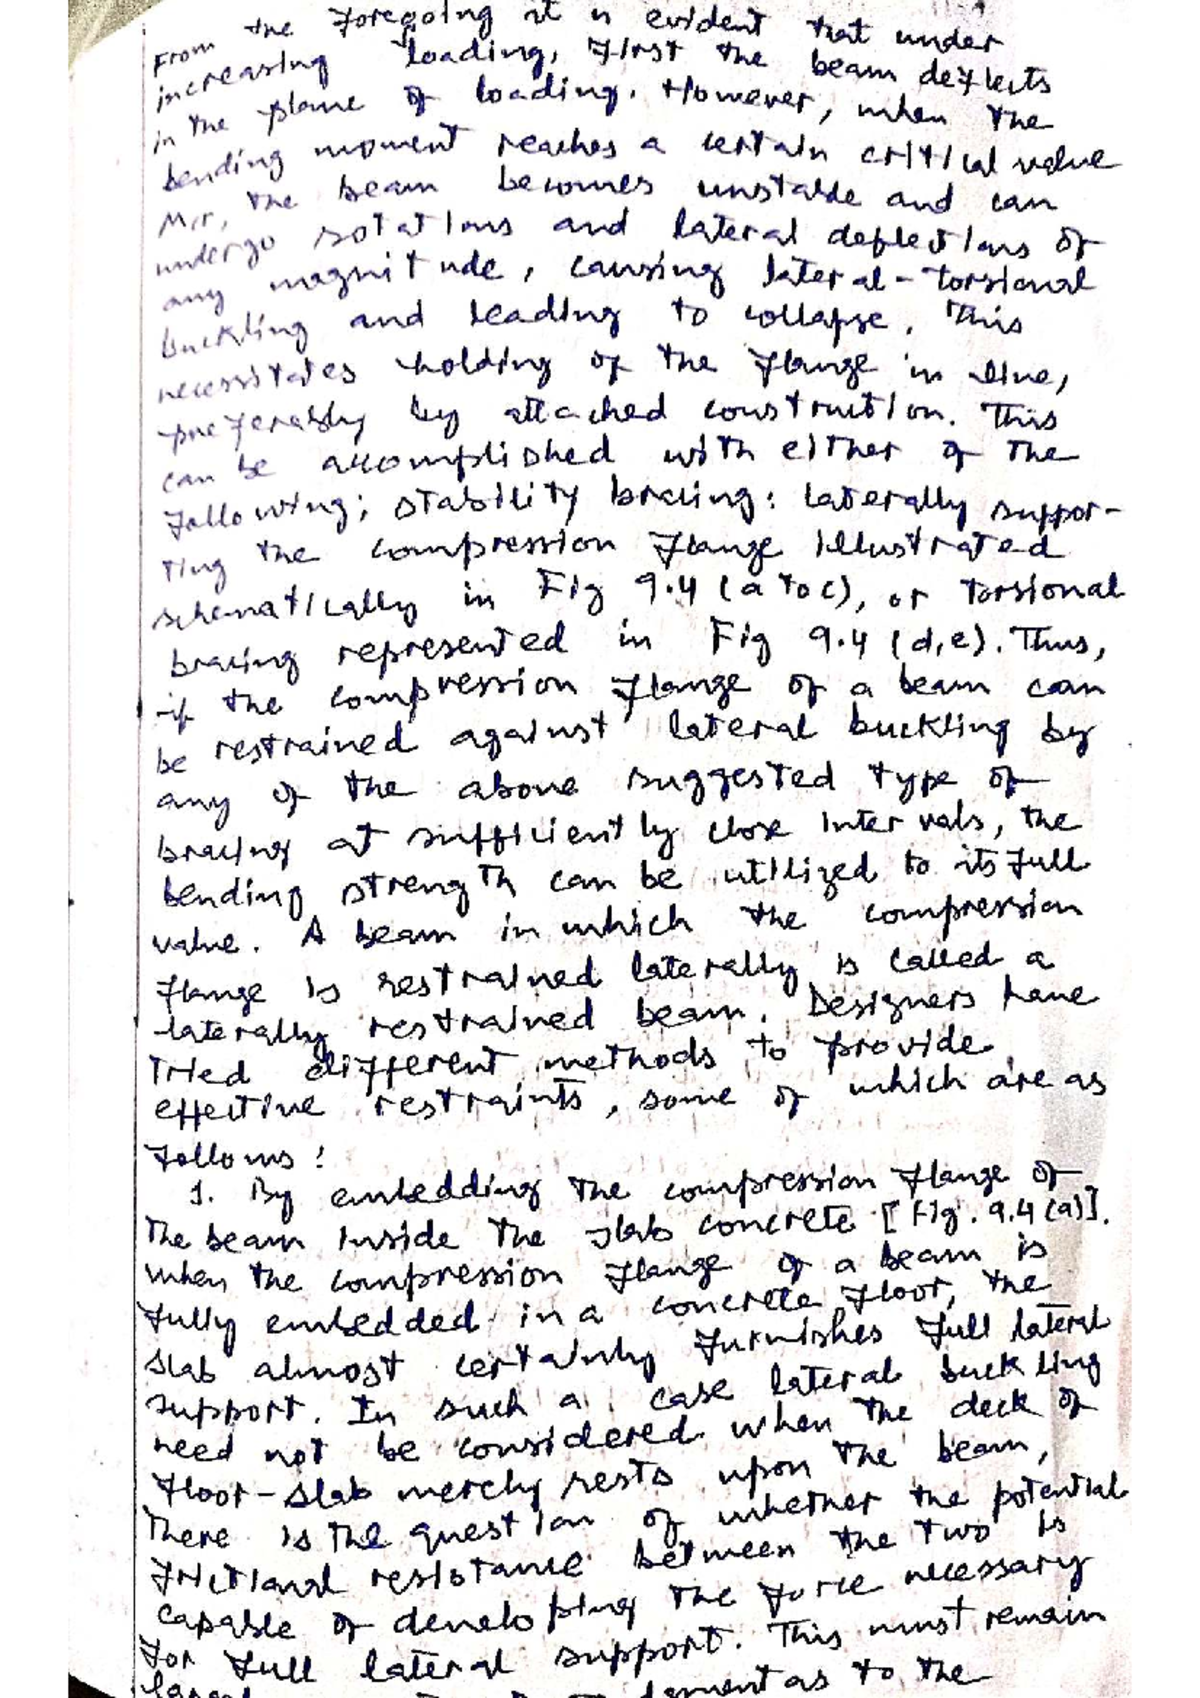 From the foregoing it is evident that under
increasing loading, first the beam deflects
in the plane of loading. However, when the
bending moment reaches a certain critical value
Mcr, the beam becomes unstable and can
undergo rotations and lateral deflections of
any magnitude, causing lateral-torsional
buckling and leading to collapse. This
necessitates holding of the flange in line,
preferably by attached construction. This
can be accomplished with either of the
following; stability bracing: laterally suppor-
ting the compression flange illustrated
schematically in Fig 9.4 (a to c), or torsional
bracing represented in Fig 9.4 (d,e). Thus,
if the compression flange of a beam can
be restrained against lateral buckling by
any of the above suggested type of
bracing at sufficiently close intervals, the
bending strength can be utilized to its full
value. A beam in which the compression
flange is restrained laterally is called a
laterally restrained beam. Designers have
tried different methods to provide
effective restraints, some of which are as
follows:
1. By embedding the compression flange of
the beam inside the slab concrete [Fig. 9.4(a)].
when the compression flange of a beam is
fully embedded in a concrete floor, the
slab almost certainly furnishes full lateral
support. In such a case lateral buckling
need not be considered when the deck of
floor-slab merely rests upon the beam,
there is the question of whether the potential
frictional resistance between the two is
capable of developing the force necessary
for full lateral support. This must remain
as to the